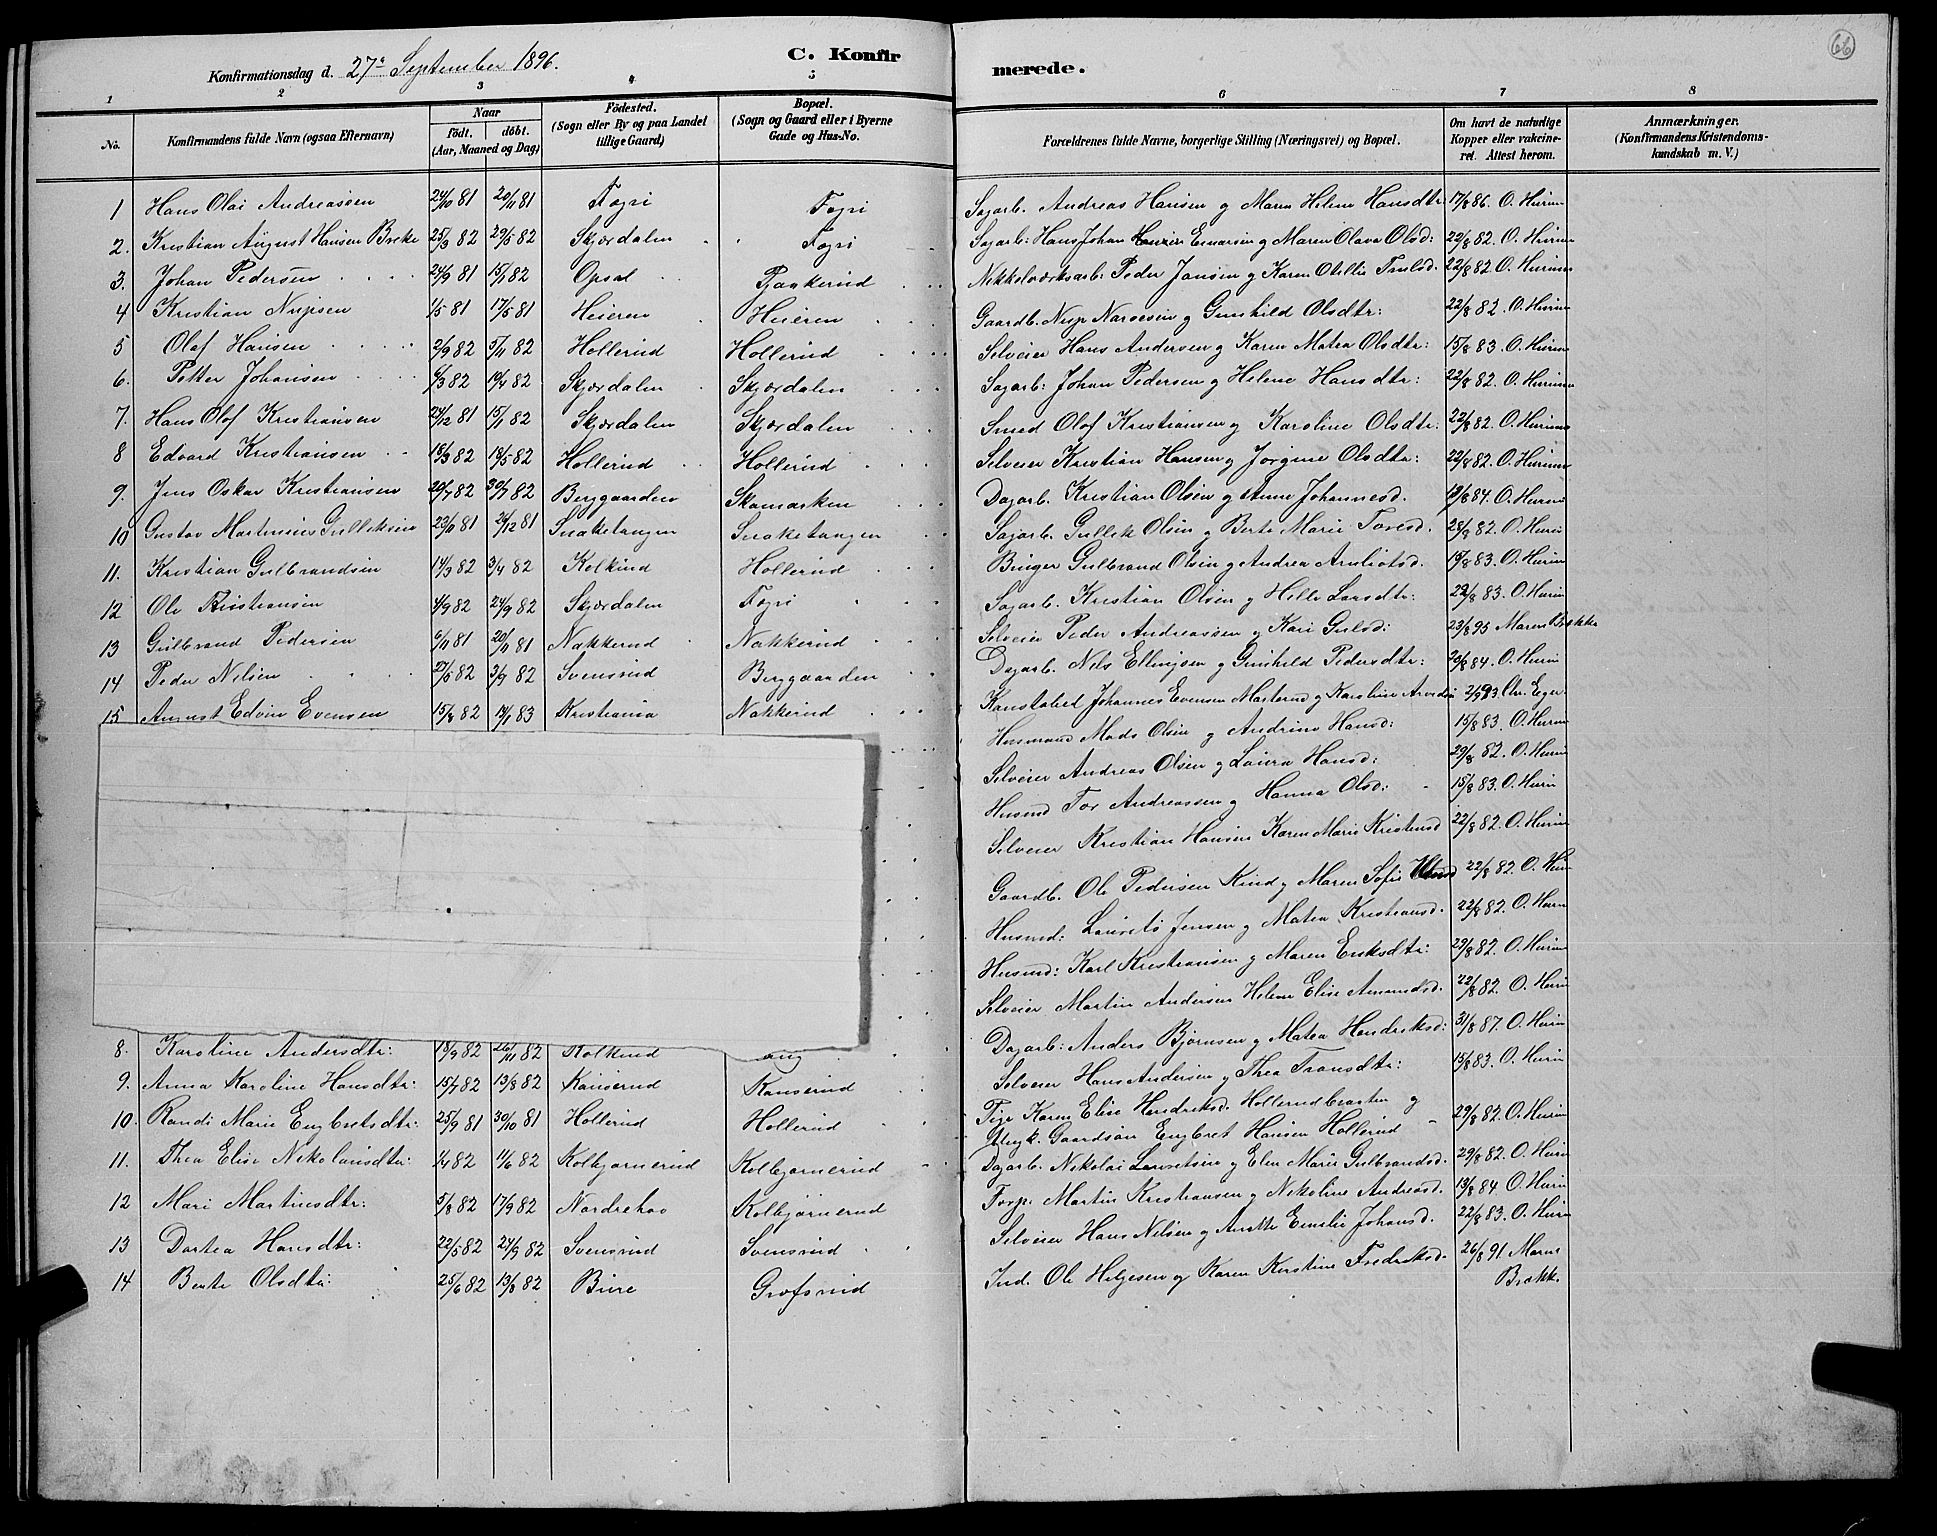 66
Konfirmationsdag d. 27de September 1896.
C. Konfirmerede.
1 2 3 4 5 6 7 8
No.
Konfirmandens fulde Navn (ogsaa Efternavn)
Naar
födt. döbt.
(Aar, Maaned og Dag)
Födested.
(Sogn eller By og paa Landet tillige Gaard)
Bopæl.
(Sogn og Gaard eller i Byerne Gade og Hus-No.
Forældrenes fulde Navne, borgerlige Stilling (Næringsvei) og Bopæl.
Om havt de naturlige Kopper eller vakcineret. Attest herom.
Anmærkninger.
(Konfirmandens Kristendomskundskab m. V.)
1 Hans Olai Andreassen 24/10 81 20/11 81 Togri Togri Sagarb. Andreas Hansen og Maren Helene Hansdtr 17/8 86. O. Hurum
2. Kristian August Hansen Breke 25/3 82 29/5 82 Skjærdalen Togri Sagarb: Hans Johan Evensen og Maren Olava Olsd: 22/8 82. O. Hurum
3. Johan Pedersen 24/9 81 15/1 82 Opsal Pjaakerud Nikkelværksarb. Peder Jansen og Karen Otilie Trulsd. 22/8 82. O. Hurum
4 Kristian Nupsen 1/5 81 17/5 81 Heieren Heieren Gaardb. Nup Narvesen og Gunhild Olsdtr: 22/8 82. O. Hurum
5 Olaf Hansen 2/9 82 5/11 82 Hollerud Hollerud Selveier Hans Andersen og Karen Matea Olsdtr: 15/8 83. O. Hurum
6. Petter Johansen 6/3 82 10/4 82 Skjærdalen Skjærdalen Sagarb: Johan Pedersen og Helene Hansdtr: 22/8 82. O. Hurum
7. Hans Olaf Kristiansen 24/12 81 15/1 82 Skjærdalen Skjærdalen Smed Olaf Kristiansen og Karoline Olsdtr: 22/8 82. O. Hurum
8 Edvard Kristiansen 18/3 82 18/5 82 Hollerud Hollerud Selveier Kristian Hansen og Jørgine Olsdtr: 22/8 82. O. Hurum
9. Jens Oskar Kristiansen 20/7 82 30/7 82 Berggaarden Skamarken Dagarb. Kristian Olsen og Anne Johannesd. 13/8 84. O. Hurum
10 Gustav Martinius Gulliksen 23/10 81 26/12 81 Snaketangen Snaketangen Sagarb. Gullik Olsen og Berte Marie Toresd. 28/8 82. O. Hurum
11. Kristian Gulbrandsen 14/3 82 3/4 82 Kolkind Hollerud Bruger Gulbrand Olsen og Andrea Arnliotsd. 15/8 83. O. Hurum
12 Ole Kristiansen 4/9 82 24/9 82 Skjærdalen Togri Sagarb. Kristian Olsen og Helle Larsdtr: 22/8 83. O. Hurum
13 Gulbrand Pedersen 6/11 81 20/11 81 Nakkerud Nakkerud Selveier Peder Andreassen og Kari Gulsd: 23/8 95 Maren Brekke
14 Peder Nilsen 27/5 82 3/9 82 Svensrud Berggaarden Dagarb. Nils Ellingsen og Gunhild Pedersdtr: 20/8 84. O. Hurum
15 August Edvin Evensen 15/8 82 14/1 83 Kristiania Nakkerud Konstabel Johannes Evensen Masterud og Karoline 2/9 93 Chr. Eger.
Husmand Mads Olsen og Andrine Hansd: 15/8 83. O. Hurum
Selveier Andreas Olsen og Laura Hansd: 29/8 82. O. Hurum
Husmd Tor Andreassen og Hanna Olsd: 15/8 83. O. Hurum
Selveier Kristian Hansen Karen Marie Kristensd 22/8 82. O. Hurum
Gaardb. Ole Pedersen Rud og Maren Sofie 22/8 82. O. Hurum
Husmd: Laurits Jensen og Matea Kristiansd. 22/8 82. O. Hurum
Husmd: Karl Kristiansen og Maren Eriksdtr: 29/8 82. O. Hurum
Selveier Martin Andersen Helene Elise Amundsd. 22/8 82. O. Hurum
8. Karoline Andersdtr: 18/9 82 26/11 82 Kolkind Dagarb: Anders Bjørnsen og Matea Hendriksd: 31/8 87. O. Hurum
9. Anna Karoline Hansdtr: 15/7 82 13/8 82 Ranserud Ranserud Selveier Hans Andersen og Thea Fransdtr: 15/8 83. O. Hurum
10. Randi Marie Engbretsdtr: 25/9 81 30/10 81 Hollerud Hollerud Pige Karen Elise Hendriksd. Hollerudbraaten og
Ungk. Gaardsøn Engbret Hansen Hollerud 29/8 82. O. Hurum
11. Thea Elise Nikolaisdtr: 1/4 82 11/6 82 Kolbjørnerud Kolbjørnerud Dagarb. Nikolai Lauritsen og Elen Marie Gulbrandsd. 29/8 82. O. Hurum
12 Mari Martinsdtr: 5/8 82 17/9 82 Norderhov Kolbjørnerud Forp. Martin Kristiansen og Nikoline Andreasd. 13/8 84. O. Hurum
13 Dortea Hansdtr: 22/5 82 24/9 82 Svensrud Svensrud Selveier Hans Nilsen og Anette Emilie Johansd. 22/8 83. O. Hurum
14 Berte Olsdtr: 25/6 82 13/8 82 Bure Grofsrud Ind. Ole Helgesen og Karen Kirstine Fredriksd. 26/8 91. Maren
Brekke